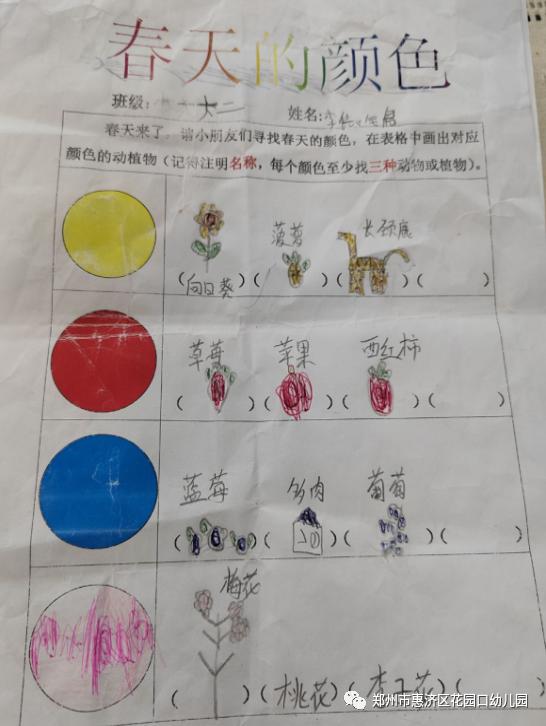 春天的颜色
班级: 大二 姓名:
春天来了,请小朋友们寻找春天的颜色,在表格中画出对应
颜色的动植物(记得注明名称,每个颜色至少找三种动物或植物)。
菠萝 长颈鹿
(向日葵)( )( )( )
草莓 苹果 西红柿
( )( )( )( )
蓝莓 多肉 葡萄
( )( )( )( )
梅花
( )(桃花)(李子花)( )
郑州市惠济区花园口幼儿园